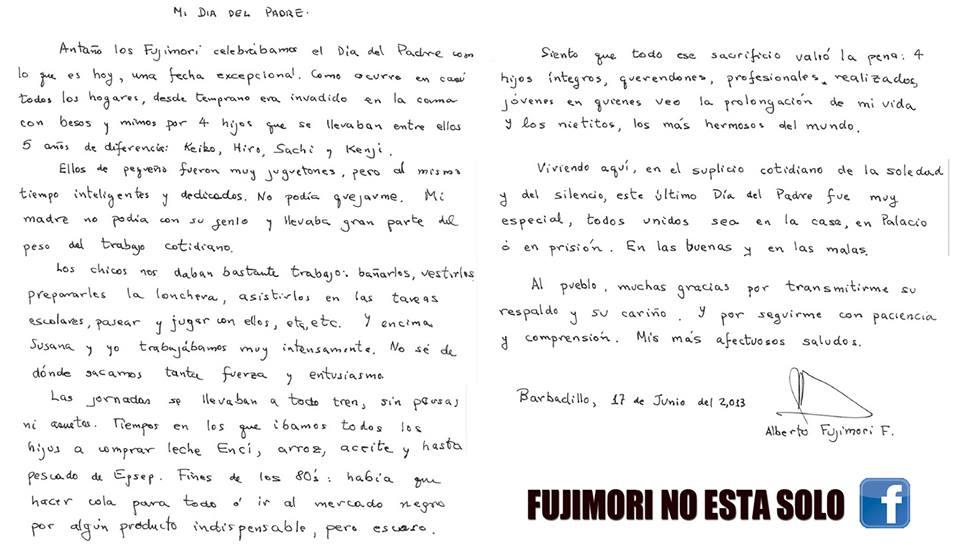 MI DIA DEL PADRE.
Antaño los Fujimori celebrábamos el Día del Padre como
lo que es hoy, una fecha excepcional. Como ocurre en casi
todos los hogares, desde temprano era invadido en la cama
con besos y mimos por 4 hijos que se llevaban entre ellos
5 años de diferencia: Keiko, Hiro, Sachi y Kenji.
Ellos de pequeño fueron muy juguetones, pero al mismo
tiempo inteligentes y dedicados. No podía quejarme. Mi
madre no podía con su genio y llevaba gran parte del
peso del trabajo cotidiano.
Los chicos nos daban bastante trabajo: bañarlos, vestirlos,
prepararles la lonchera, asistirlos en las tareas
escolares, pasear y jugar con ellos, etc, etc. Y encima
Susana y yo trabajábamos muy intensamente. No sé de
dónde sacamos tanta fuerza y entusiasmo.
Las jornadas se llevaban a todo tren, sin pausas
ni Tiempos en los que íbamos todos los
hijos a comprar leche Enci, arroz, aceite y hasta
pescado de Epsep. Fines de los 80's: había que
hacer cola para todo ó ir al mercado negro
por algún producto indispensable, pero escaso.
Siento que todo ese sacrificio valió la pena: 4
hijos íntegros, querendones, profesionales, realizados,
jóvenes en quienes veo la prolongación de mi vida
y los nietitos, los más hermosos del mundo.
Viviendo aquí, en el suplicio cotidiano de la soledad
y del silencio, este último Día del Padre fue muy
especial, todos unidos sea en la casa, en Palacio
ó en prisión. En las buenas y en las malas.
Al pueblo, muchas gracias por transmitirme su
respaldo y su cariño. Y por seguirme con paciencia
y comprensión. Mis más afectuosos saludos.
Barbadillo, 17 de Junio del 2,013
Alberto Fujimori F.
FUJIMORI NO ESTA SOLO f